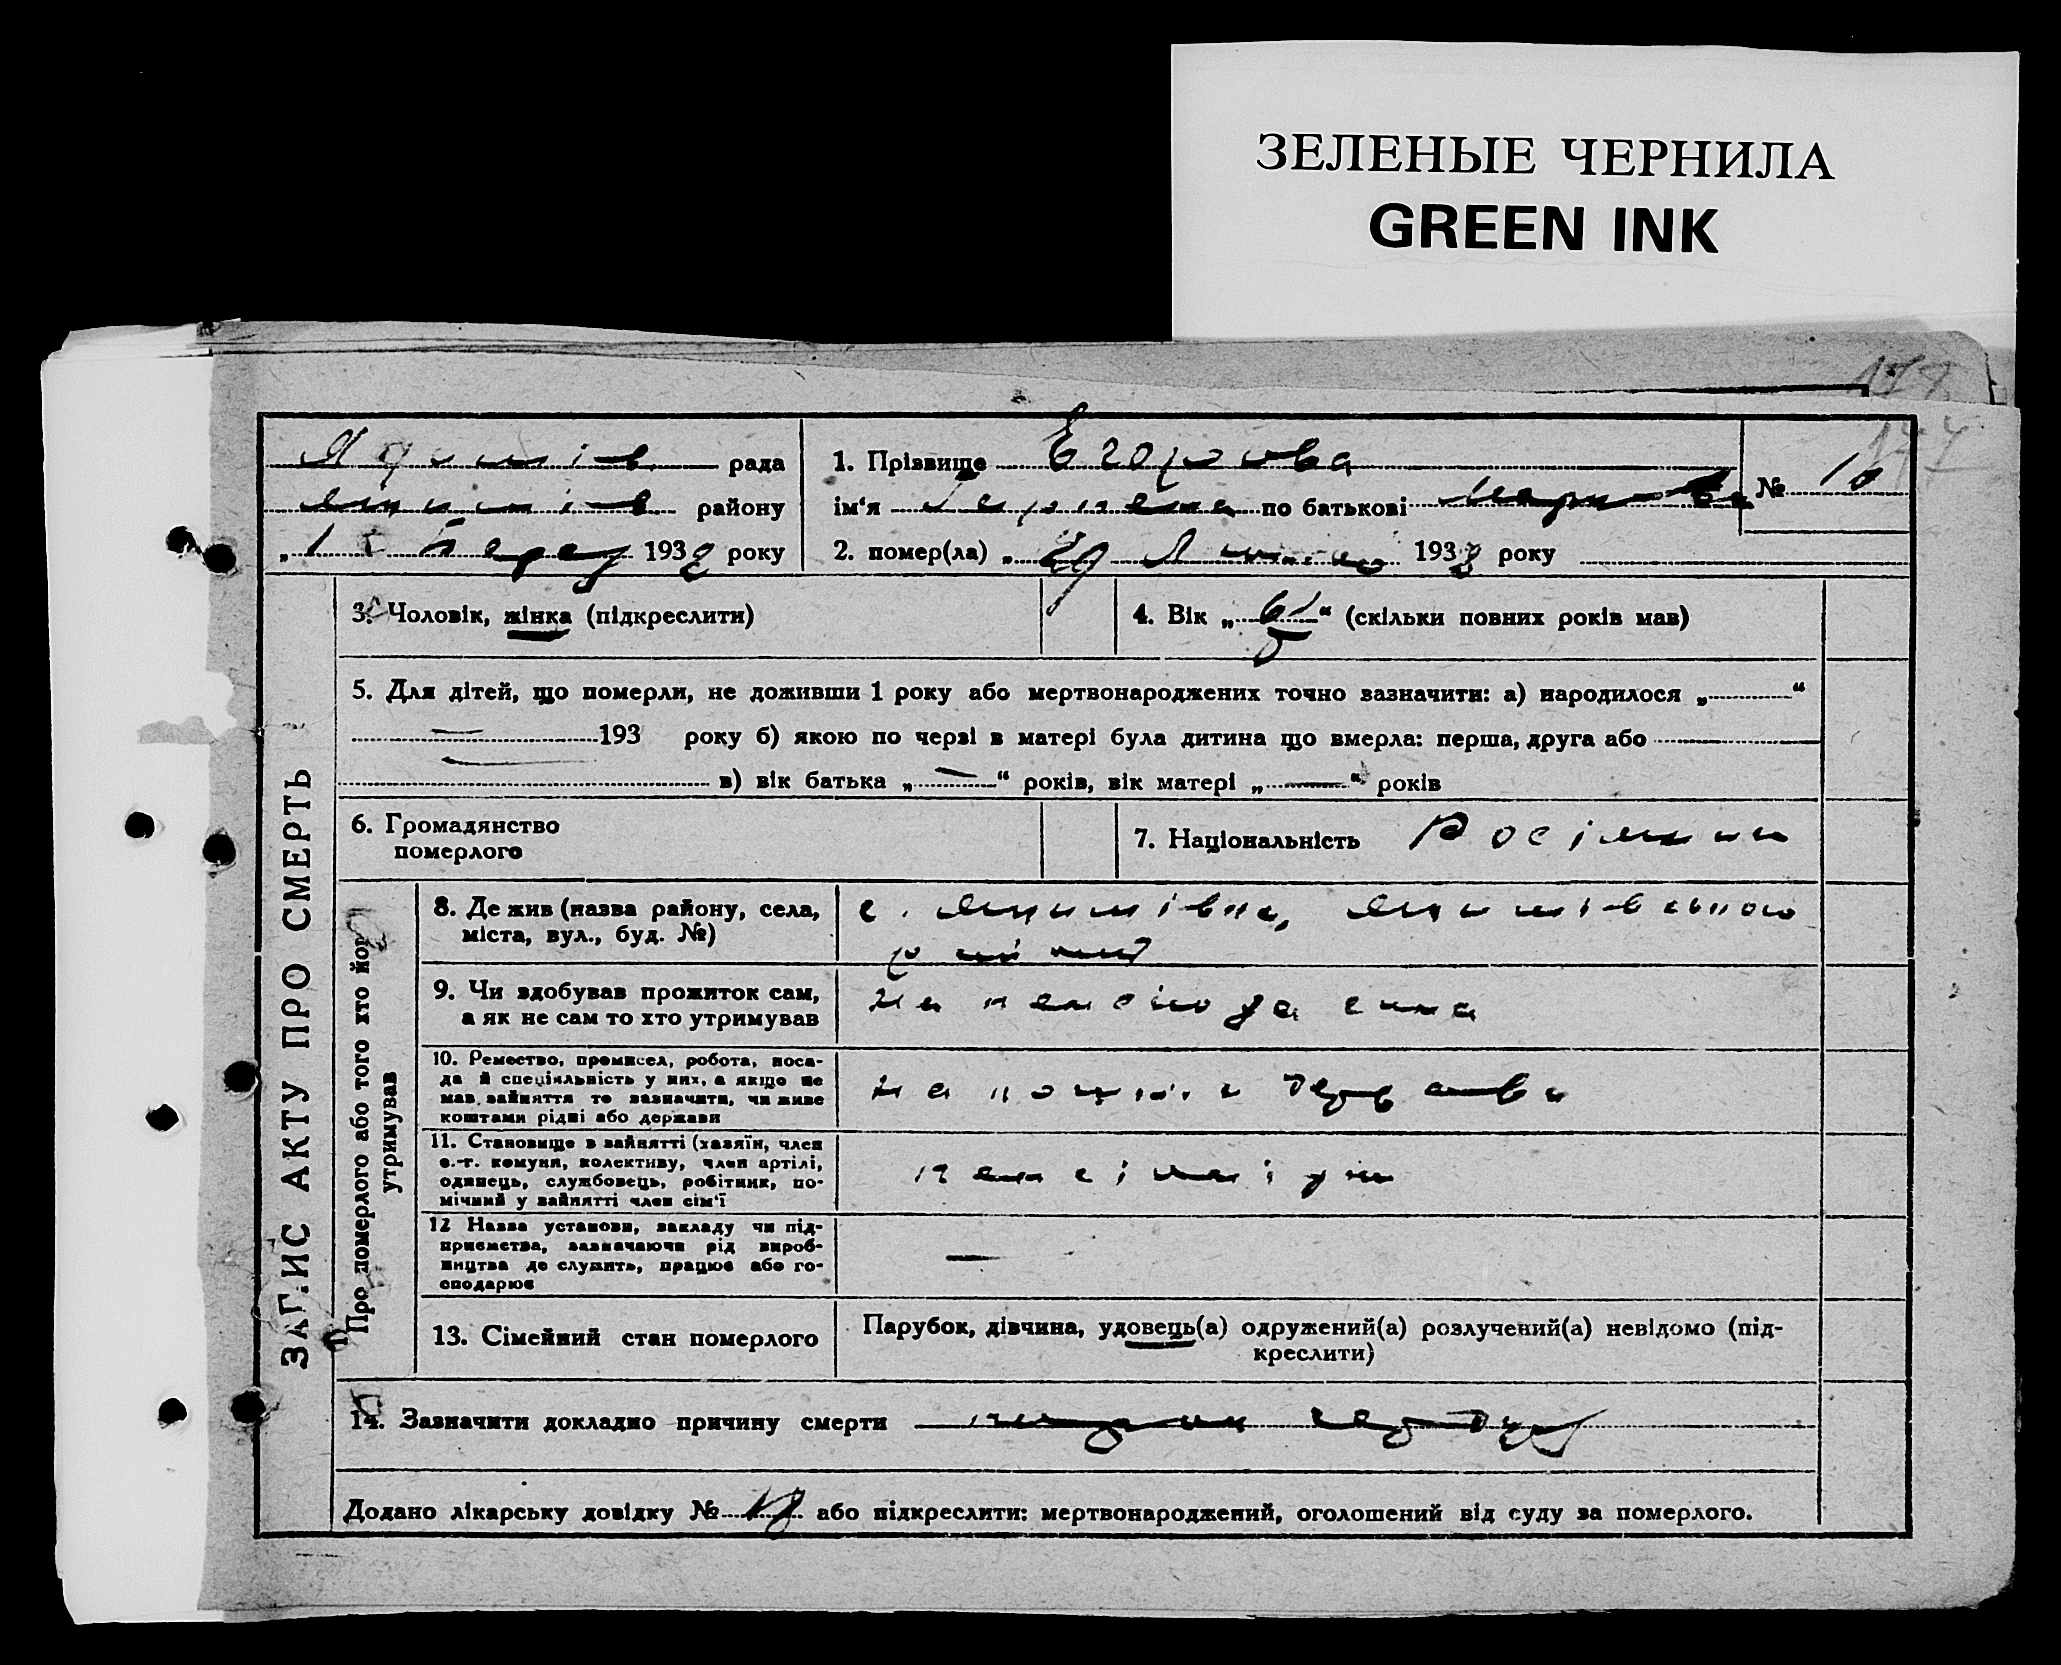 ЗЕЛЕНЫЕ ЧЕРНИЛА
GREEN INK
177
рада
району
„1" Берез 1938 року
1. Прізвище Егорова
ім'я по батькові
№ 10
2. помер(ла) „29 1938 року
ЗАПИС АКТУ ПРО СМЕРТЬ
3. Чоловік, жінка (підкреслити)
4. Вік „61" (скільки повних років мав)
5. Для дітей, що померли, не доживши 1 року або мертвонароджених точно зазначити: а) народилося „ "
193 року б) якою по черзі в матері була дитина що вмерла: перша, друга або
в) вік батька „—" років, вік матері „—" років
6. Громадянство
померлого
7. Національність Росіянин
Про померлого або того хто його
утримував
8. Де жив (назва району, села,
міста, вул., буд. №)
с.
9. Чи здобував прожиток сам,
а як не сам то хто утримував
на пенсію за сина
10. Ремество, промисел, робота, поса-
да й спеціяльність у них, а якщо не
мав заняття то зазначити, чи живе
коштами рідні або держави
на держави
11. Становище в занятті (хазяїн, член
с.-г. комуни, колективу, член артілі,
одинець, службовець, робітник, по-
мічний у занятті член сім'ї
пенсіоніун
12 Назва установи, закладу чи під-
приємства, зазначаючи рід вироб-
ництва де служить, працює або го-
сподарює
—
13. Сімейний стан померлого
Парубок, дівчина, удовець(а) одружений(а) розлучений(а) невідомо (під-
креслити)
14. Зазначити докладно причину смерти
Додано лікарську довідку № 18 або підкреслити: мертвонароджений, оголошений від суду за померлого.